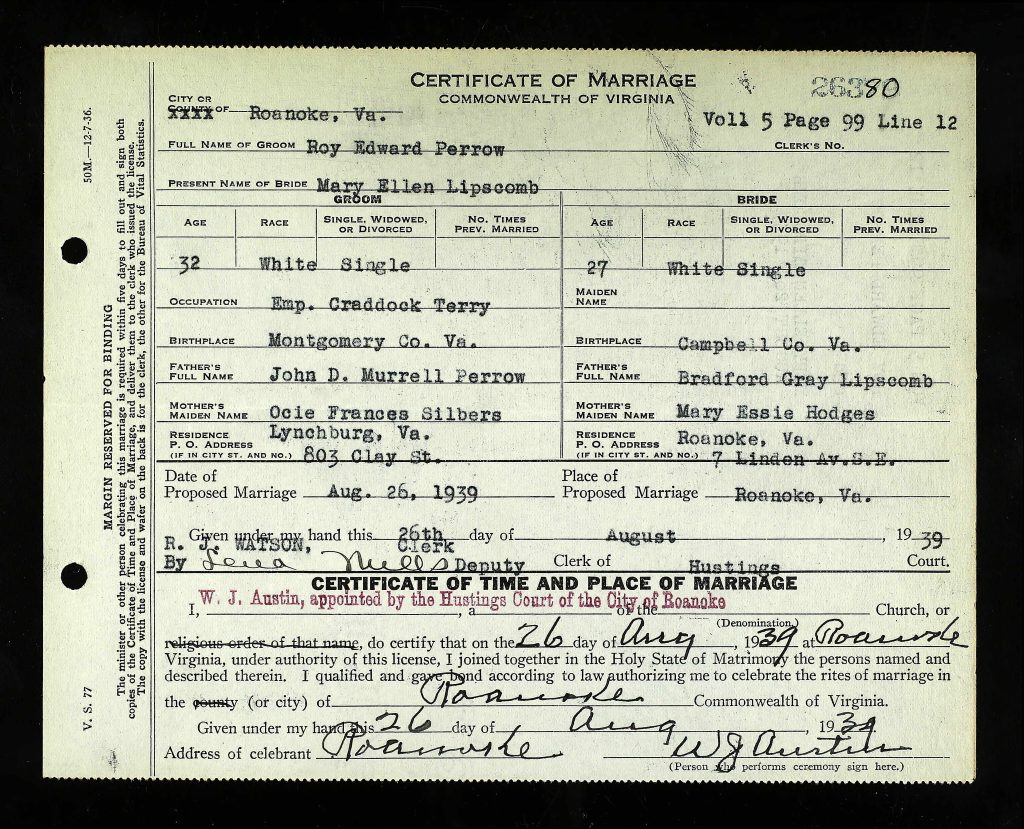 CERTIFICATE OF MARRIAGE
COMMONWEALTH OF VIRGINIA
26380
CITY OR
COUNTY OF Roanoke, Va.
XXXX
Voll 5 Page 99 Line 12
CLERK'S NO.
FULL NAME OF GROOM Roy Edward Perrow
PRESENT NAME OF BRIDE Mary Ellen Lipscomb
GROOM BRIDE
AGE RACE SINGLE, WIDOWED, OR DIVORCED NO. TIMES PREV. MARRIED AGE RACE SINGLE, WIDOWED, OR DIVORCED NO. TIMES PREV. MARRIED
32 White Single 27 White Single
OCCUPATION Emp. Craddock Terry MAIDEN NAME
BIRTHPLACE Montgomery Co. Va. BIRTHPLACE Campbell Co. Va.
FATHER'S FULL NAME John D. Murrell Perrow FATHER'S FULL NAME Bradford Gray Lipscomb
MOTHER'S MAIDEN NAME Ocie Frances Silbers MOTHER'S MAIDEN NAME Mary Essie Hodges
RESIDENCE Lynchburg, Va. RESIDENCE Roanoke, Va.
P. O. ADDRESS P. O. ADDRESS
(IF IN CITY ST. AND NO.) 803 Clay St. (IF IN CITY ST. AND NO.) 7 Linden Av.S.E.
Date of Proposed Marriage Aug. 26, 1939 Place of Proposed Marriage Roanoke, Va.
Given under my hand this 26th day of August, 1939
R. J. WATSON, Clerk
By Lena Mills Deputy Clerk of Hustings Court.
CERTIFICATE OF TIME AND PLACE OF MARRIAGE
W. J. Austin, appointed by the Hustings Court of the City of Roanoke
I, , a of the Church, or
(Denomination)
religious order of that name, do certify that on the 26 day of Aug, 1939 at Roanoke
Virginia, under authority of this license, I joined together in the Holy State of Matrimony the persons named and
described therein. I qualified and gave bond according to law authorizing me to celebrate the rites of marriage in
the county (or city) of Roanoke Commonwealth of Virginia.
Given under my hand this 26 day of Aug, 1939
Address of celebrant Roanoke W J Austin
(Person who performs ceremony sign here.)
V. S. 77 50M.—12-7-36.
MARGIN RESERVED FOR BINDING
The minister or other person celebrating this marriage is required within five days to fill out and sign both
copies of the Certificate of Time and Place of Marriage, and deliver them to the clerk who issued the license.
The copy with the license and wafer on the back is for the clerk, the other for the Bureau of Vital Statistics.